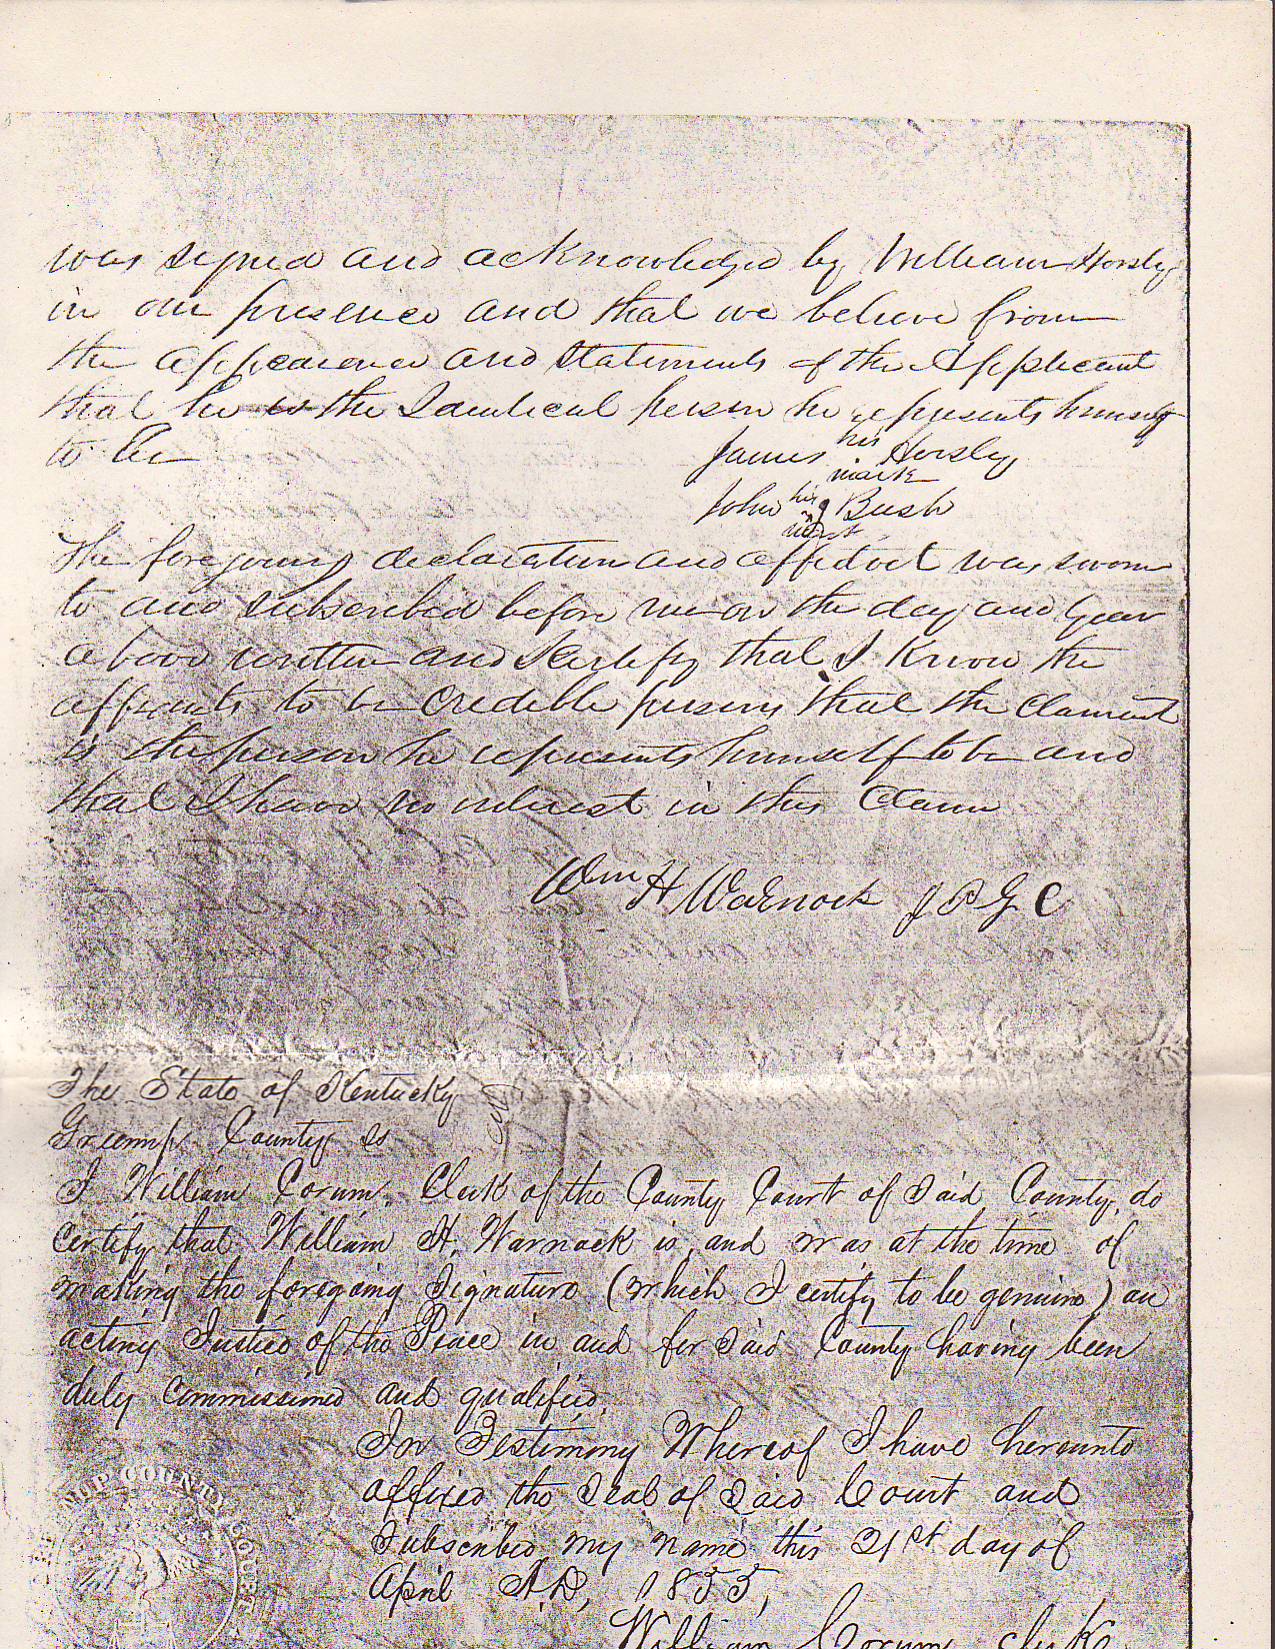 was signed and acknowledged by William Horsley
in our presence and that we believe from
the appearance and statements of the Applicant
that he is the Identical person he represents himself
to be
James his Horsley
mark
John his Bush
mark
The foregoing declaration and affidavit was sworn
to and subscribed before me on the day and year
above written and I Certify that I Know the
affiants to be Credible persons that the Claimant
is the person he represents himself to be and
that I have no interest in this Claim
Wm H Warnock J P G C
The State of Kentucky
Greenup County ss
I William Corum, Clerk of the County Court of Said County, do
certify that William H. Warnock is, and was at the time of
making the foregoing Signature (which I certify to be genuine) an
acting Justice of the Peace in and for Said County having been
duly commissioned and qualified.
In Testimony Whereof I have hereunto
affixed the Seal of Said Court and
Subscribed my name this 21st day of
April A.D, 1855,
William Corum, clerk
NUP COUNTY COURT